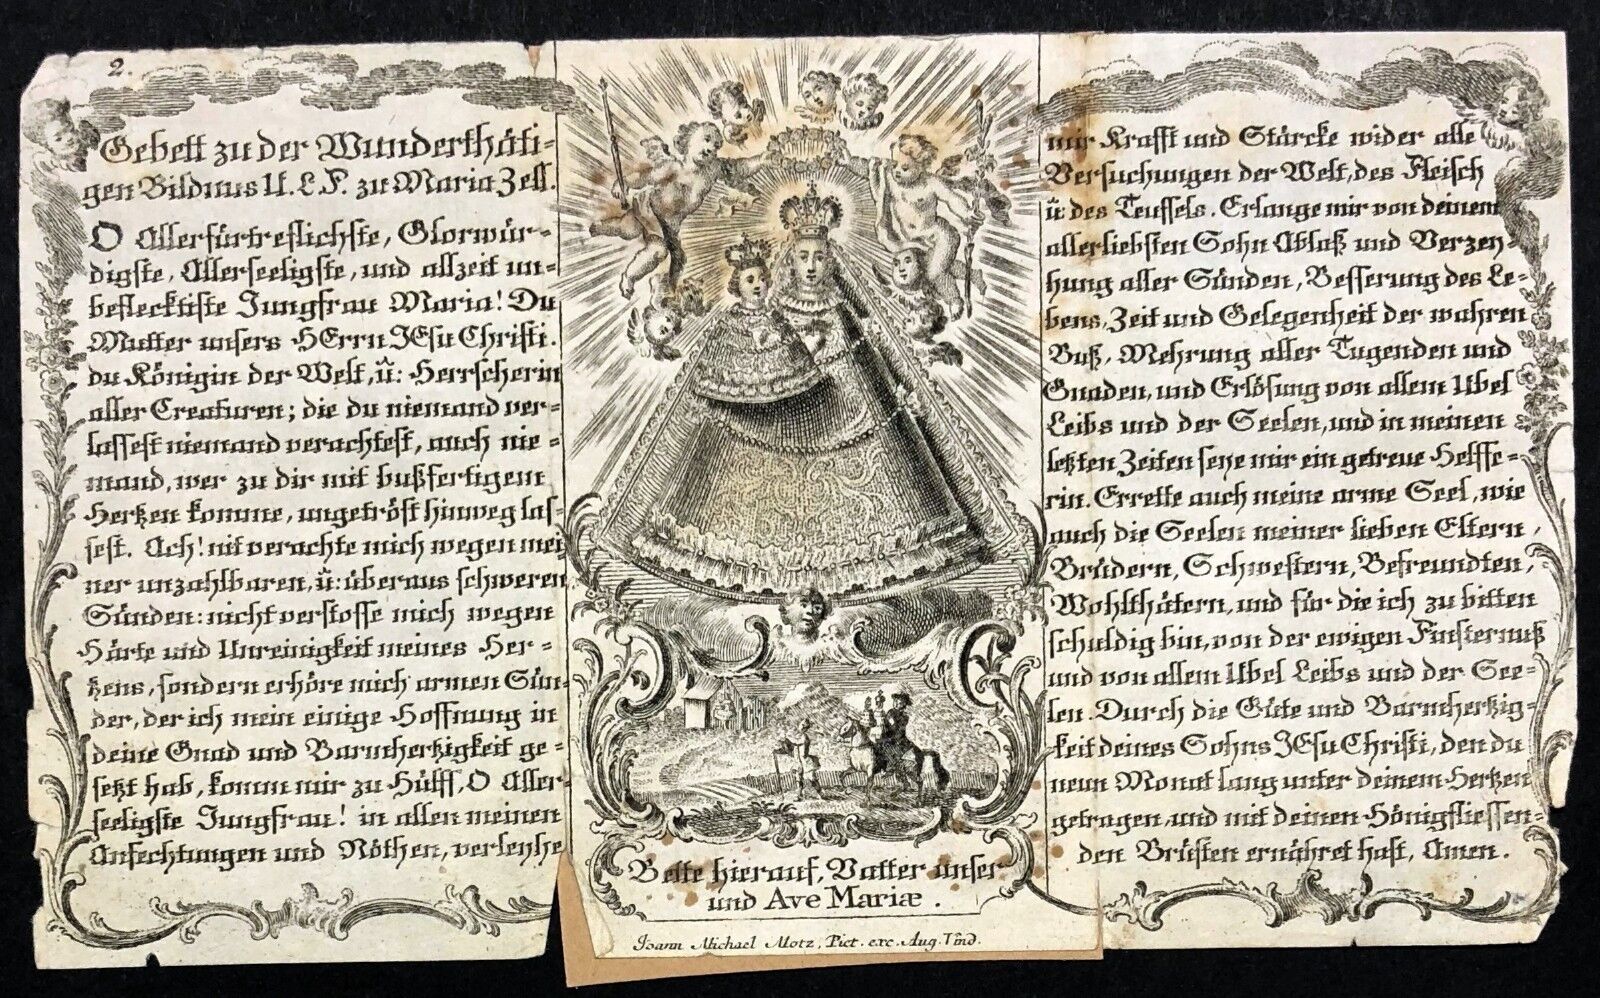 2.
Gebett zu der Wunderthäti=
gen Bildnus U. L. F. zu Maria Zell.
O Allerfürtreflichste, Glorwür=
digste, Allerseeligste, und allzeit un=
befleckteste Jungfrau Maria! Du
Mutter unsers HErrn JEsu Christi.
du Königin der Welt, ũ: Herrscherin
aller Creaturen; die du niemand ver=
lassest niemand verachtest, auch nie=
mand, wer zu dir mit bußfertigem
Hertzen komme, ungetröst hinweg las=
sest. Ach! nit verachte mich wegen mei
ner unzahlbaren, ũ: überaus schweren
Sünden: nicht verstosse mich wegen
Härte und Unreinigkeit meines Her=
tzens, sondern erhöre mich armen Sün=
der, der ich mein einige Hoffnung in
deine Gnad und Barmhertzigkeit ge=
setzt hab, komm mir zu Hülff, O Aller=
seeligste Jungfrau! in allen meinen
Anfechtungen und Nöthen, verleyhe
Bette hierauf, Vatter unser
und Ave Mariæ.
Joann Michael Motz, Pict. exc. Aug. Vind.
mir Krafft und Stärcke wider alle
Versuchungen der Welt, des Fleisch
ũ des Teuffels. Erlange mir von deinem
allerliebsten Sohn Ablaß und Verzey=
hung aller Sünden, Besserung des Le=
bens, Zeit und Gelegenheit der wahren
Buß, Mehrung aller Tugenden und
Gnaden, und Erlösung von allem Ubel
Leibs und der Seelen, und in meinen
letzten Zeiten seye mir ein getreue Helffe=
rin. Errette auch meine arme Seel, wie
auch die Seelen meiner lieben Eltern,
Brüdern, Schwestern, Befreundten,
Wohlthätern, und für die ich zu bitten
schuldig bin, von der ewigen Finsternuß
und von allem Ubel Leibs und der See=
len. Durch die Güte und Barmhertzig=
keit deines Sohns JEsu Christi, den du
neun Monat lang unter deinem Hertzen
getragen, und mit deinen Hönigfliessen=
den Brüsten ernähret hast, Amen.